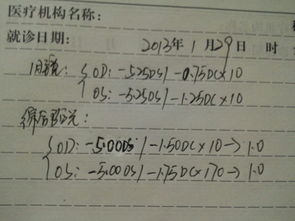 医疗机构名称:
就诊日期: 2013年 1月29日 时
OD: -5.25DS/-0.75DC×10
OS: -5.25DS/-1.25DC×10
OD: -5.00DS/-1.50DC×10→1.0
OS: -5.00DS/-1.75DC×170→1.0